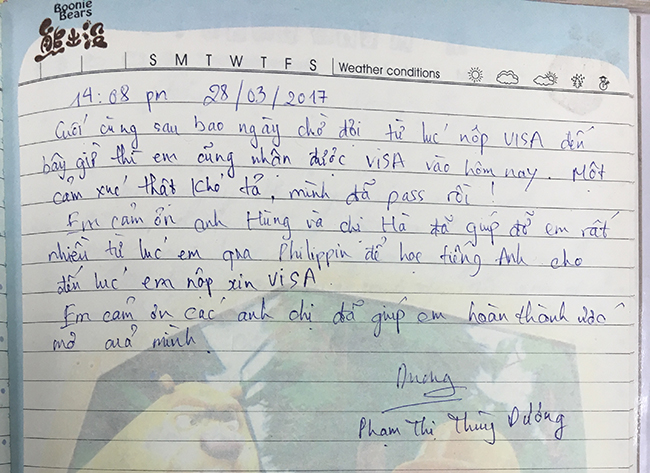 Boonie
Bears
熊出没
S M T W T F S Weather conditions
14:08 pm 28/03/2017
Cuối cùng sau bao ngày chờ đợi từ lúc nộp VISA đến
bây giờ thì em cũng nhận được VISA vào hôm nay. Một
cảm xúc thật khó tả, mình đã pass rồi!
Em cảm ơn anh Hùng và chị Hà đã giúp đỡ em rất
nhiều từ lúc em qua Philippin để học tiếng Anh cho
đến lúc em nộp xin VISA.
Em cảm ơn các anh chị đã giúp em hoàn thành ước
mơ của mình.
Duong
Phạm Thị Thùy Dương